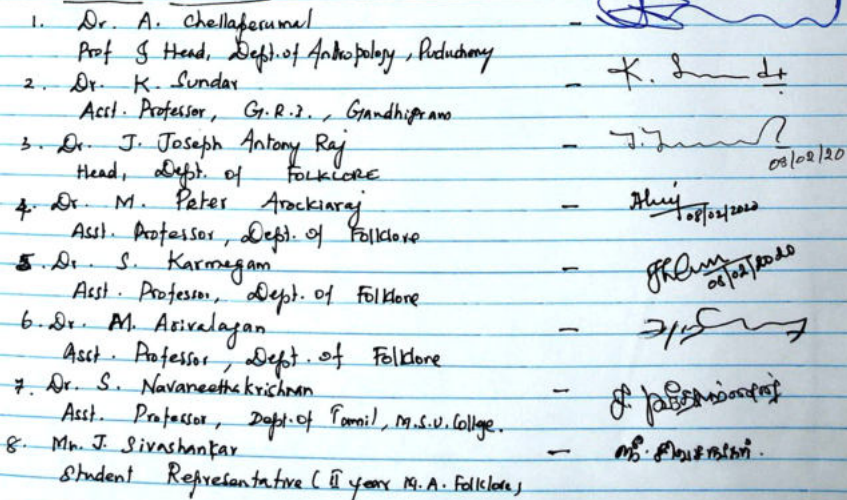 1. Dr. A. Chellaperumal -
Prof & Head, Dept. of Antropology, Puducherry
2. Dr. K. Sundar - K. S
Asst. Professor, G.R.I., Gandhigram
3. Dr. J. Joseph Antony Raj -
08/02/20
Head, Dept. of FOLKLORE
4. Dr. M. Peter Arockiaraj - 08/02/2020
Asst. Professor, Dept. of Folklore
5. Dr. S. Karmegam - 08/02/2020
Asst. Professor, Dept. of Folklore
6. Dr. M. Arivalagan -
Asst. Professor, Dept. of Folklore
7. Dr. S. Navaneethakrishnan -
Asst. Professor, Dept. of Tamil, M.S.U. College.
8. Mr. J. Sivashankar -
Student Representative (II year M.A. Folklore)